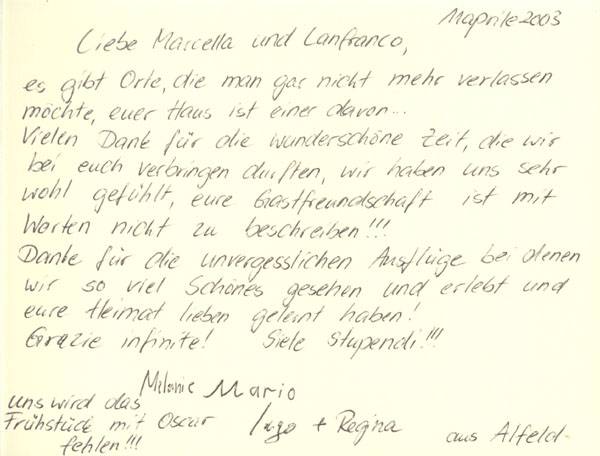 1 aprile 2003
Liebe Marcella und Lanfranco,
es gibt Orte, die man gar nicht mehr verlassen
möchte, euer Haus ist einer davon...
Vielen Dank für die wunderschöne Zeit, die wir
bei euch verbringen durften, wir haben uns sehr
wohl gefühlt, eure Gastfreundschaft ist mit
Worten nicht zu beschreiben!!!
Danke für die unvergesslichen Ausflüge bei denen
wir so viel Schönes gesehen und erlebt und
eure Heimat lieben gelernt haben!
Grazie infinite! Siete stupendi!!!
Melanie Mario
Ingo + Regina
uns wird das
Frühstück mit Oscar
fehlen!!!
aus Alfeld